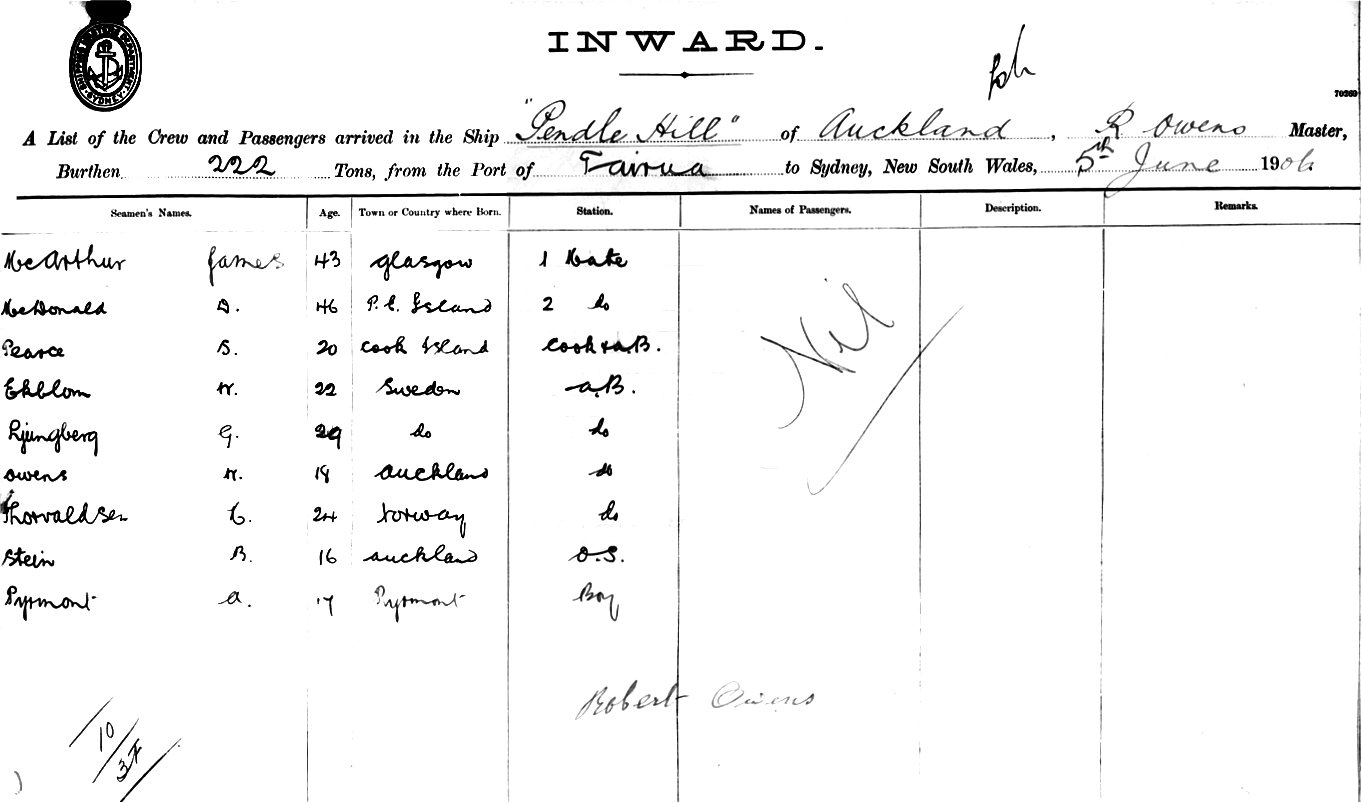 SHIPPING MASTERS DEPARTMENT SYDNEY
INWARD.
70269
A List of the Crew and Passengers arrived in the Ship "Pendle Hill" of Auckland, R Owens Master,
Burthen 222 Tons, from the Port of Tairua to Sydney, New South Wales, 5th June 1906
Seamen's Names. Age. Town or Country where Born. Station. Names of Passengers. Description. Remarks.
McArthur James 43 Glasgow 1 Mate
McDonald D. 46 P.E. Island 2 do
Pearce S. 20 Cook Island Cook & A.B.
Ekblom W. 22 Sweden A.B.
Ljungberg G. 29 do do
Owens W. 18 Auckland do
Thorvaldsen C. 24 Norway do
Stein B. 16 Auckland O.S.
Pyrmont A. 17 Pyrmont Boy
Nil
Robert Owens
10
37